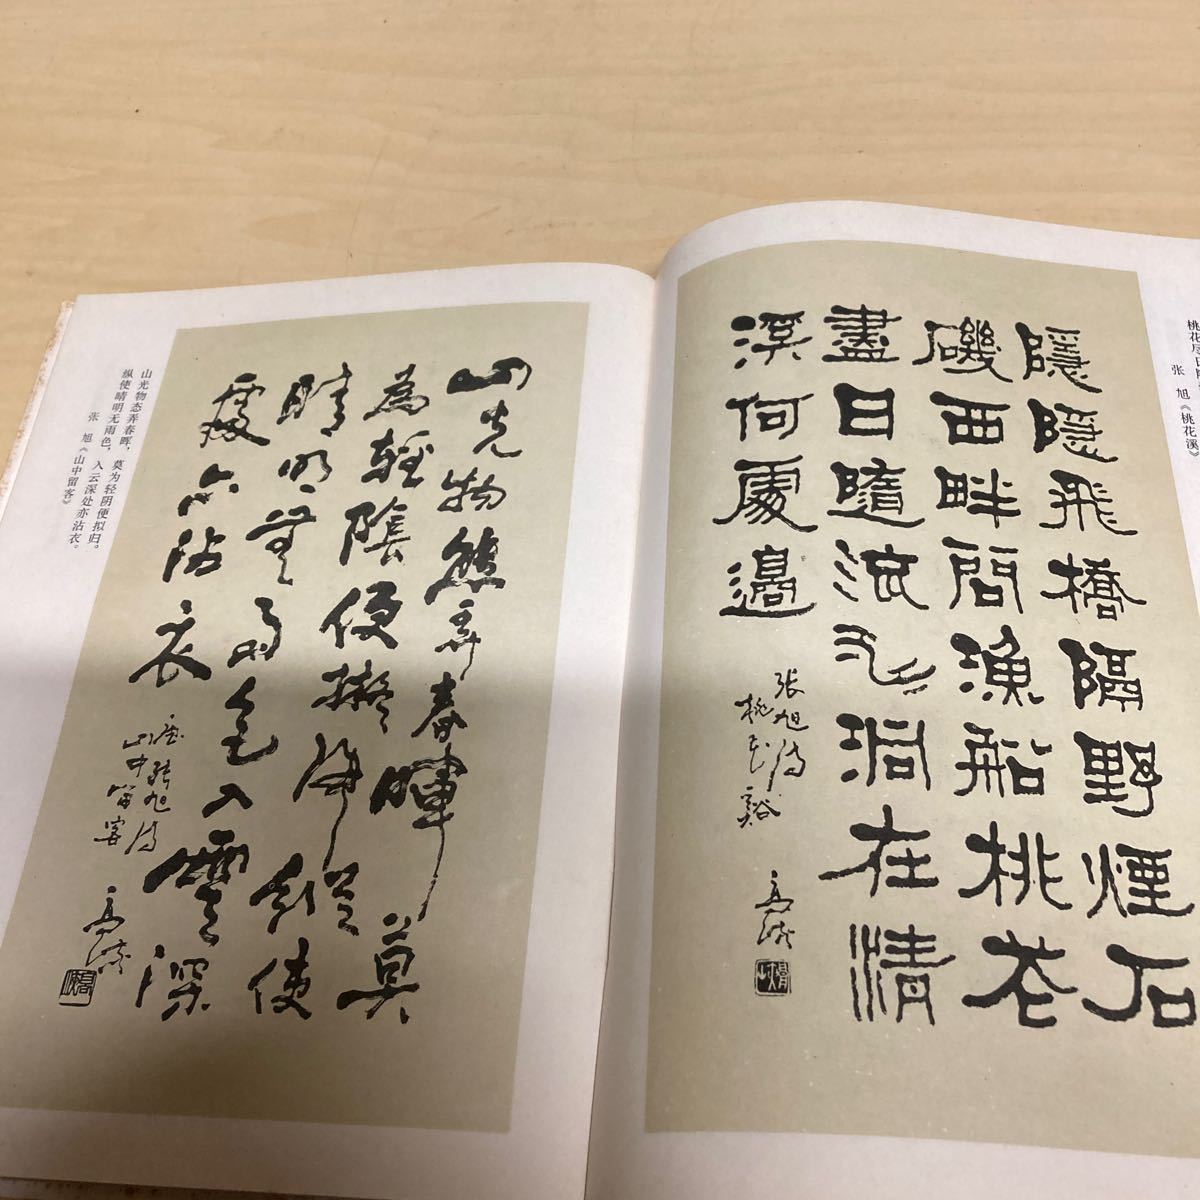 桃花尽日随
张 旭《桃花溪》
隱隱飛橋隔野煙石
磯西畔問漁船桃花
盡日隨流水洞在清
溪何處邊
張旭詩
桃花谿
山光物態弄春暉莫
為輕陰便擬歸縱使
晴明無雨色入雲深
處亦沾衣
唐張旭詩
山中留客
山光物态弄春晖，莫为轻阴便拟归。
纵使晴明无雨色，入云深处亦沾衣。
张 旭《山中留客》